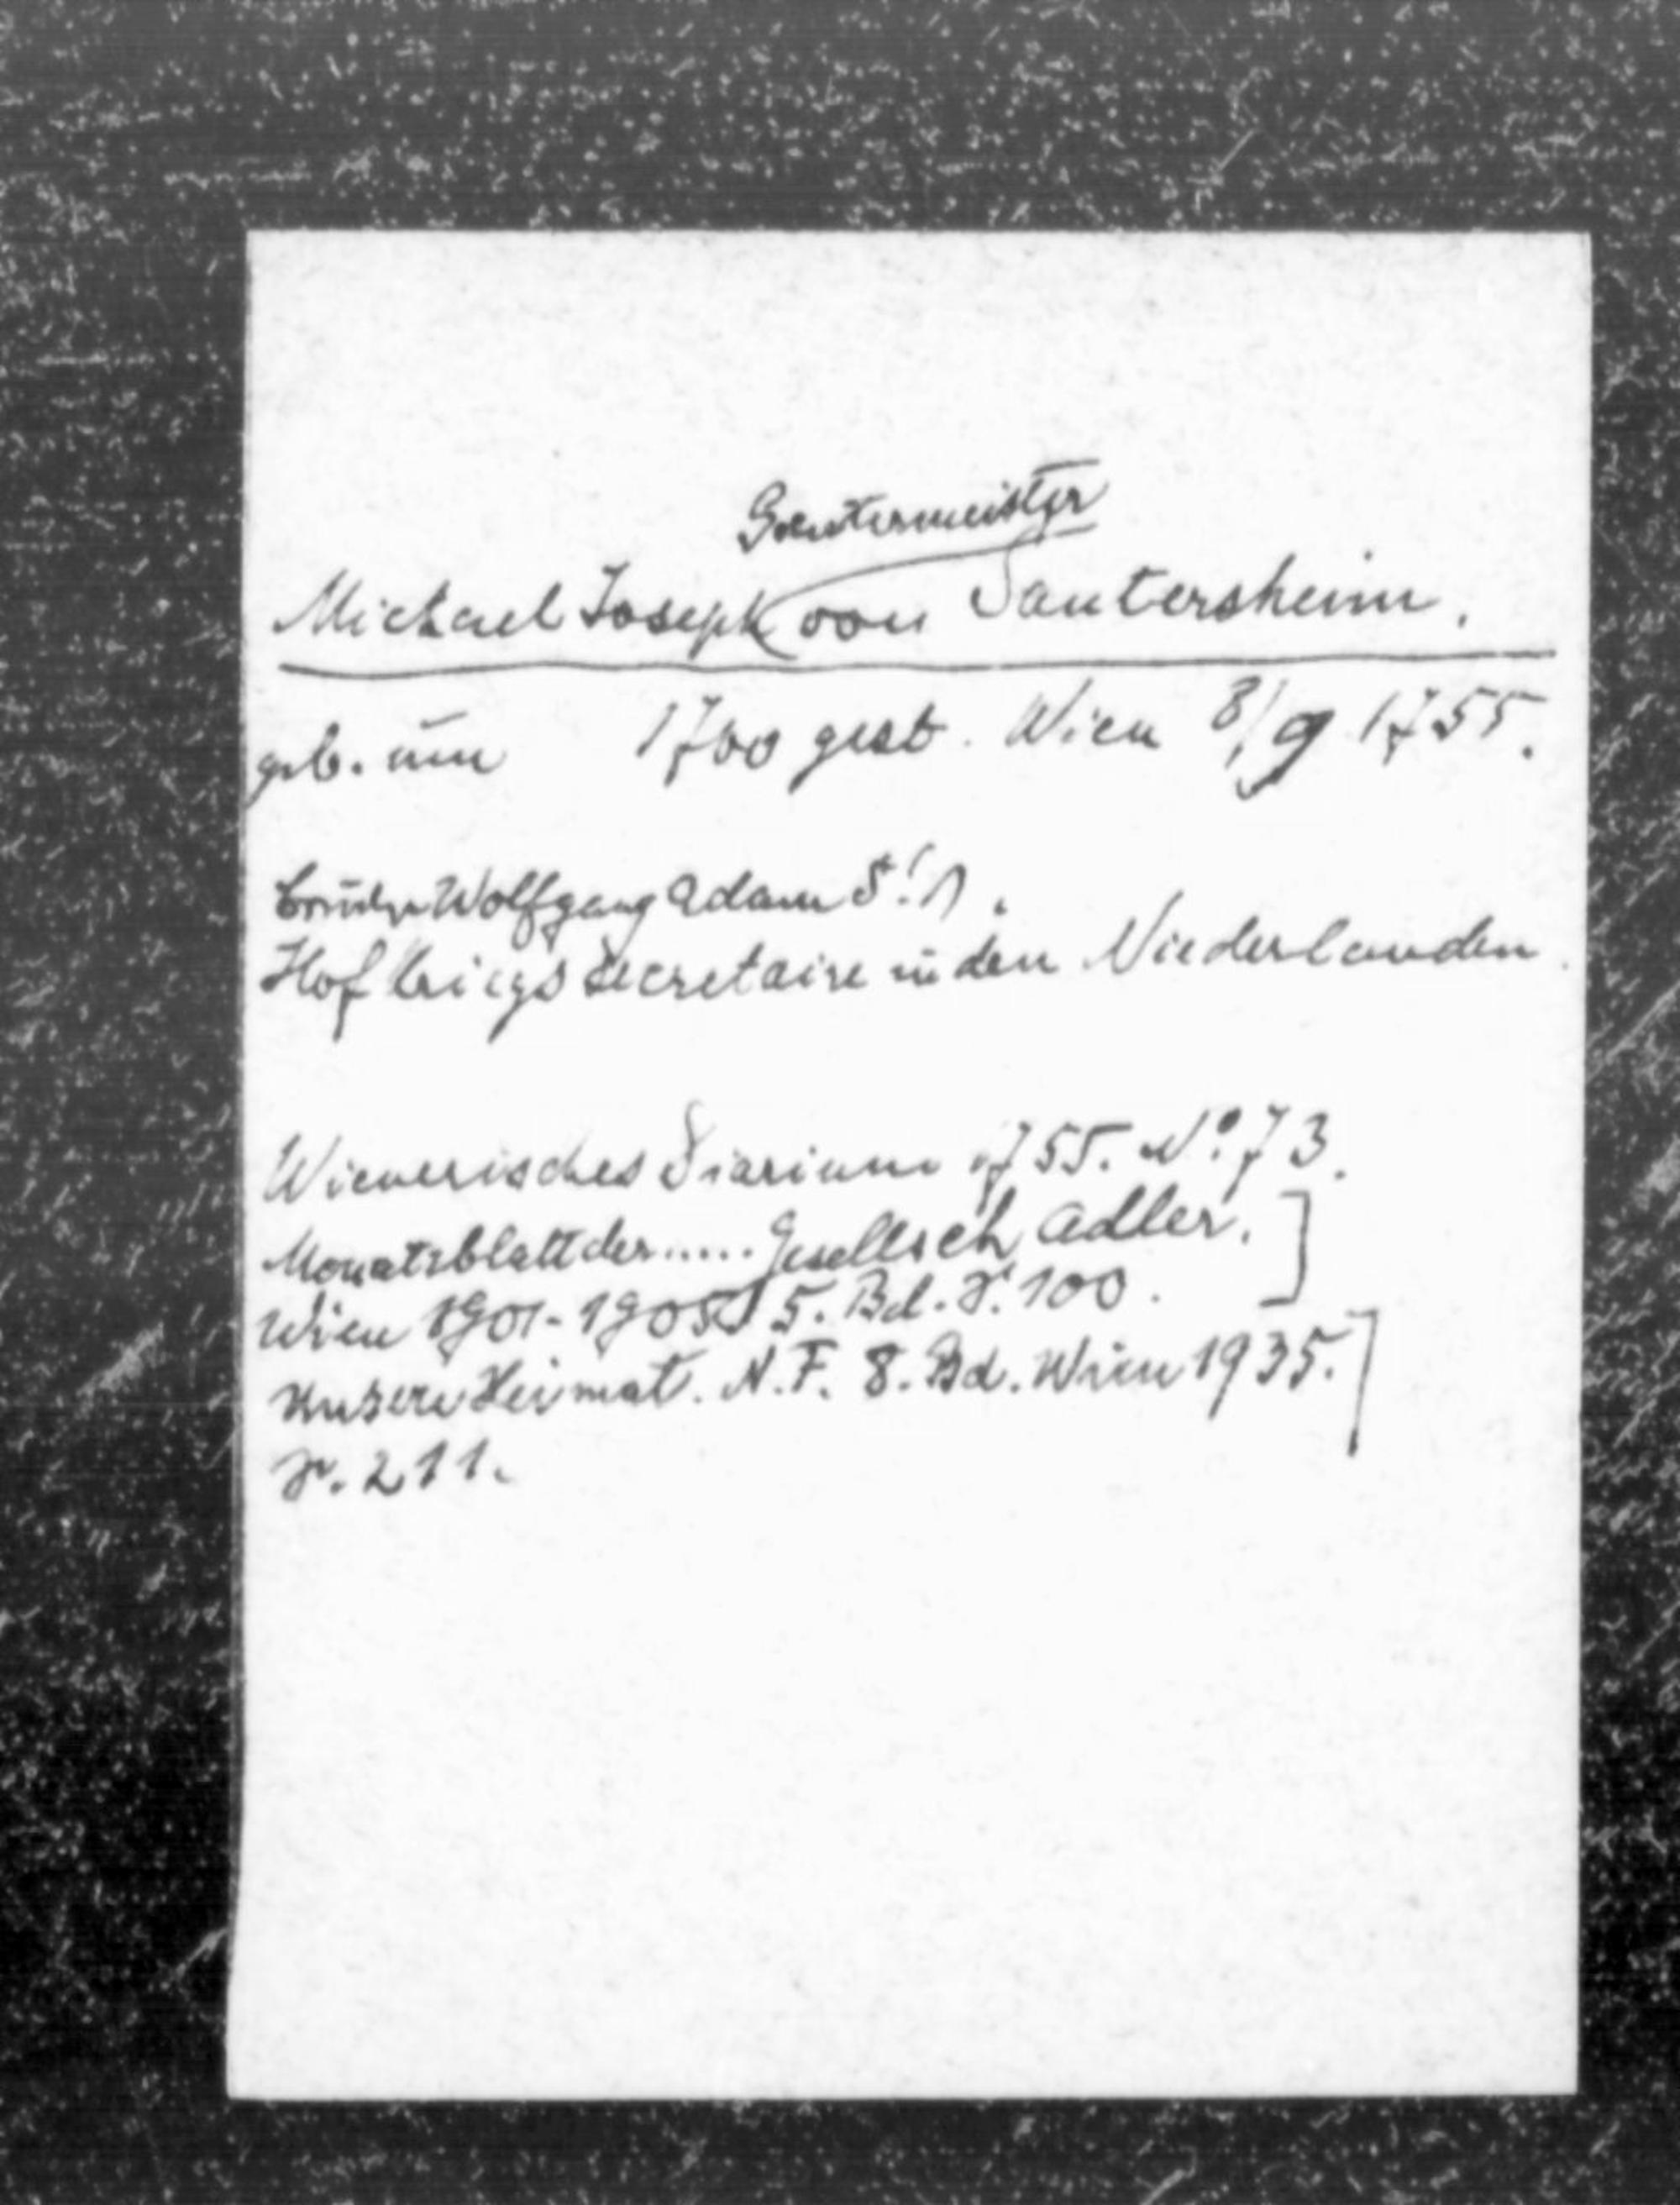 Sautermeister
Michael Joseph von Sautersheim.
geb. um 1700 gest. Wien 8/9 1755.
Bruder Wolfgang Adam S.!
Hofkriegssecretaire in den Niederlanden.
Wienerisches Diarium 1755. No. 73.
Monatsblatt der..... Gesellsch Adler. ]
Wien 1901-1905 5. Bd. S. 100.
Unsere Heimat. N. F. 8. Bd. Wien 1935. ]
S. 211.